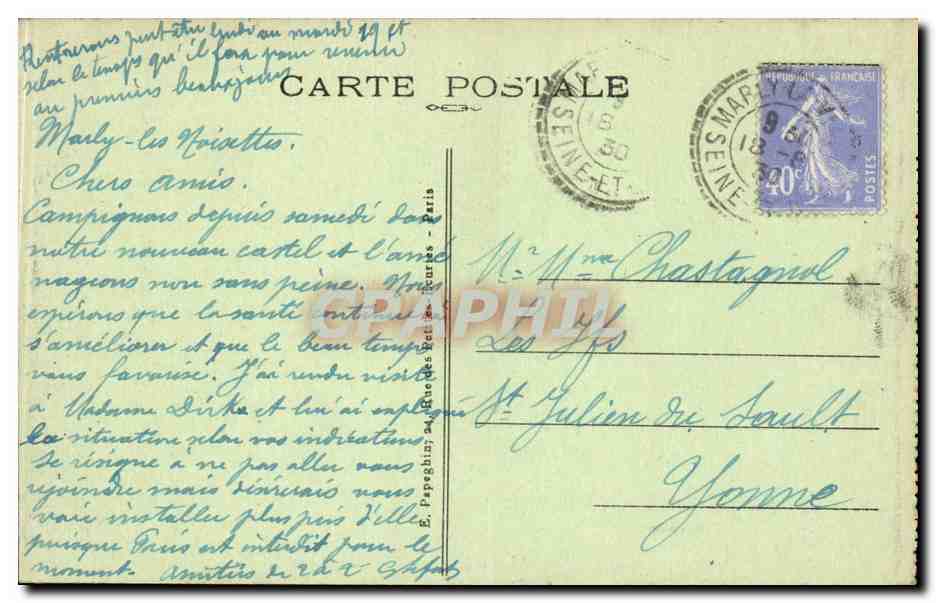 Rentrerons peut-être lundi ou mardi 19 et
selon le temps qu'il fera pour revenir
au premiers beaux jours
CARTE POSTALE
Marly-les Noisettes.
Chers amis.
Campignons depuis samedi dans
notre nouveau castel et l'amé
nageons non sans peine. Nous
espérons que la santé continue à
s'améliorer et que le beau temps
vous favorise. J'ai rendu visite
à Madame Dirks et lui ai expliqué
la situation selon vos indications.
Se résigne à ne pas aller vous
rejoindre mais désirerais vous
voir installer plus près d'elle
puisque Paris est interdit pour le
moment. Amitiés de 2 à 2
E. Papeghin, 24, Rue des Petites-Ecuries - Paris
SEINE-ET
18
30
MARLY-L
SEINE-
18 -6
30
REPUBLIQUE FRANÇAISE
40c
POSTES
Mr Mme Chastagnol
Les Ifs
St Julien du Sault
Yonne
CPAPHIL